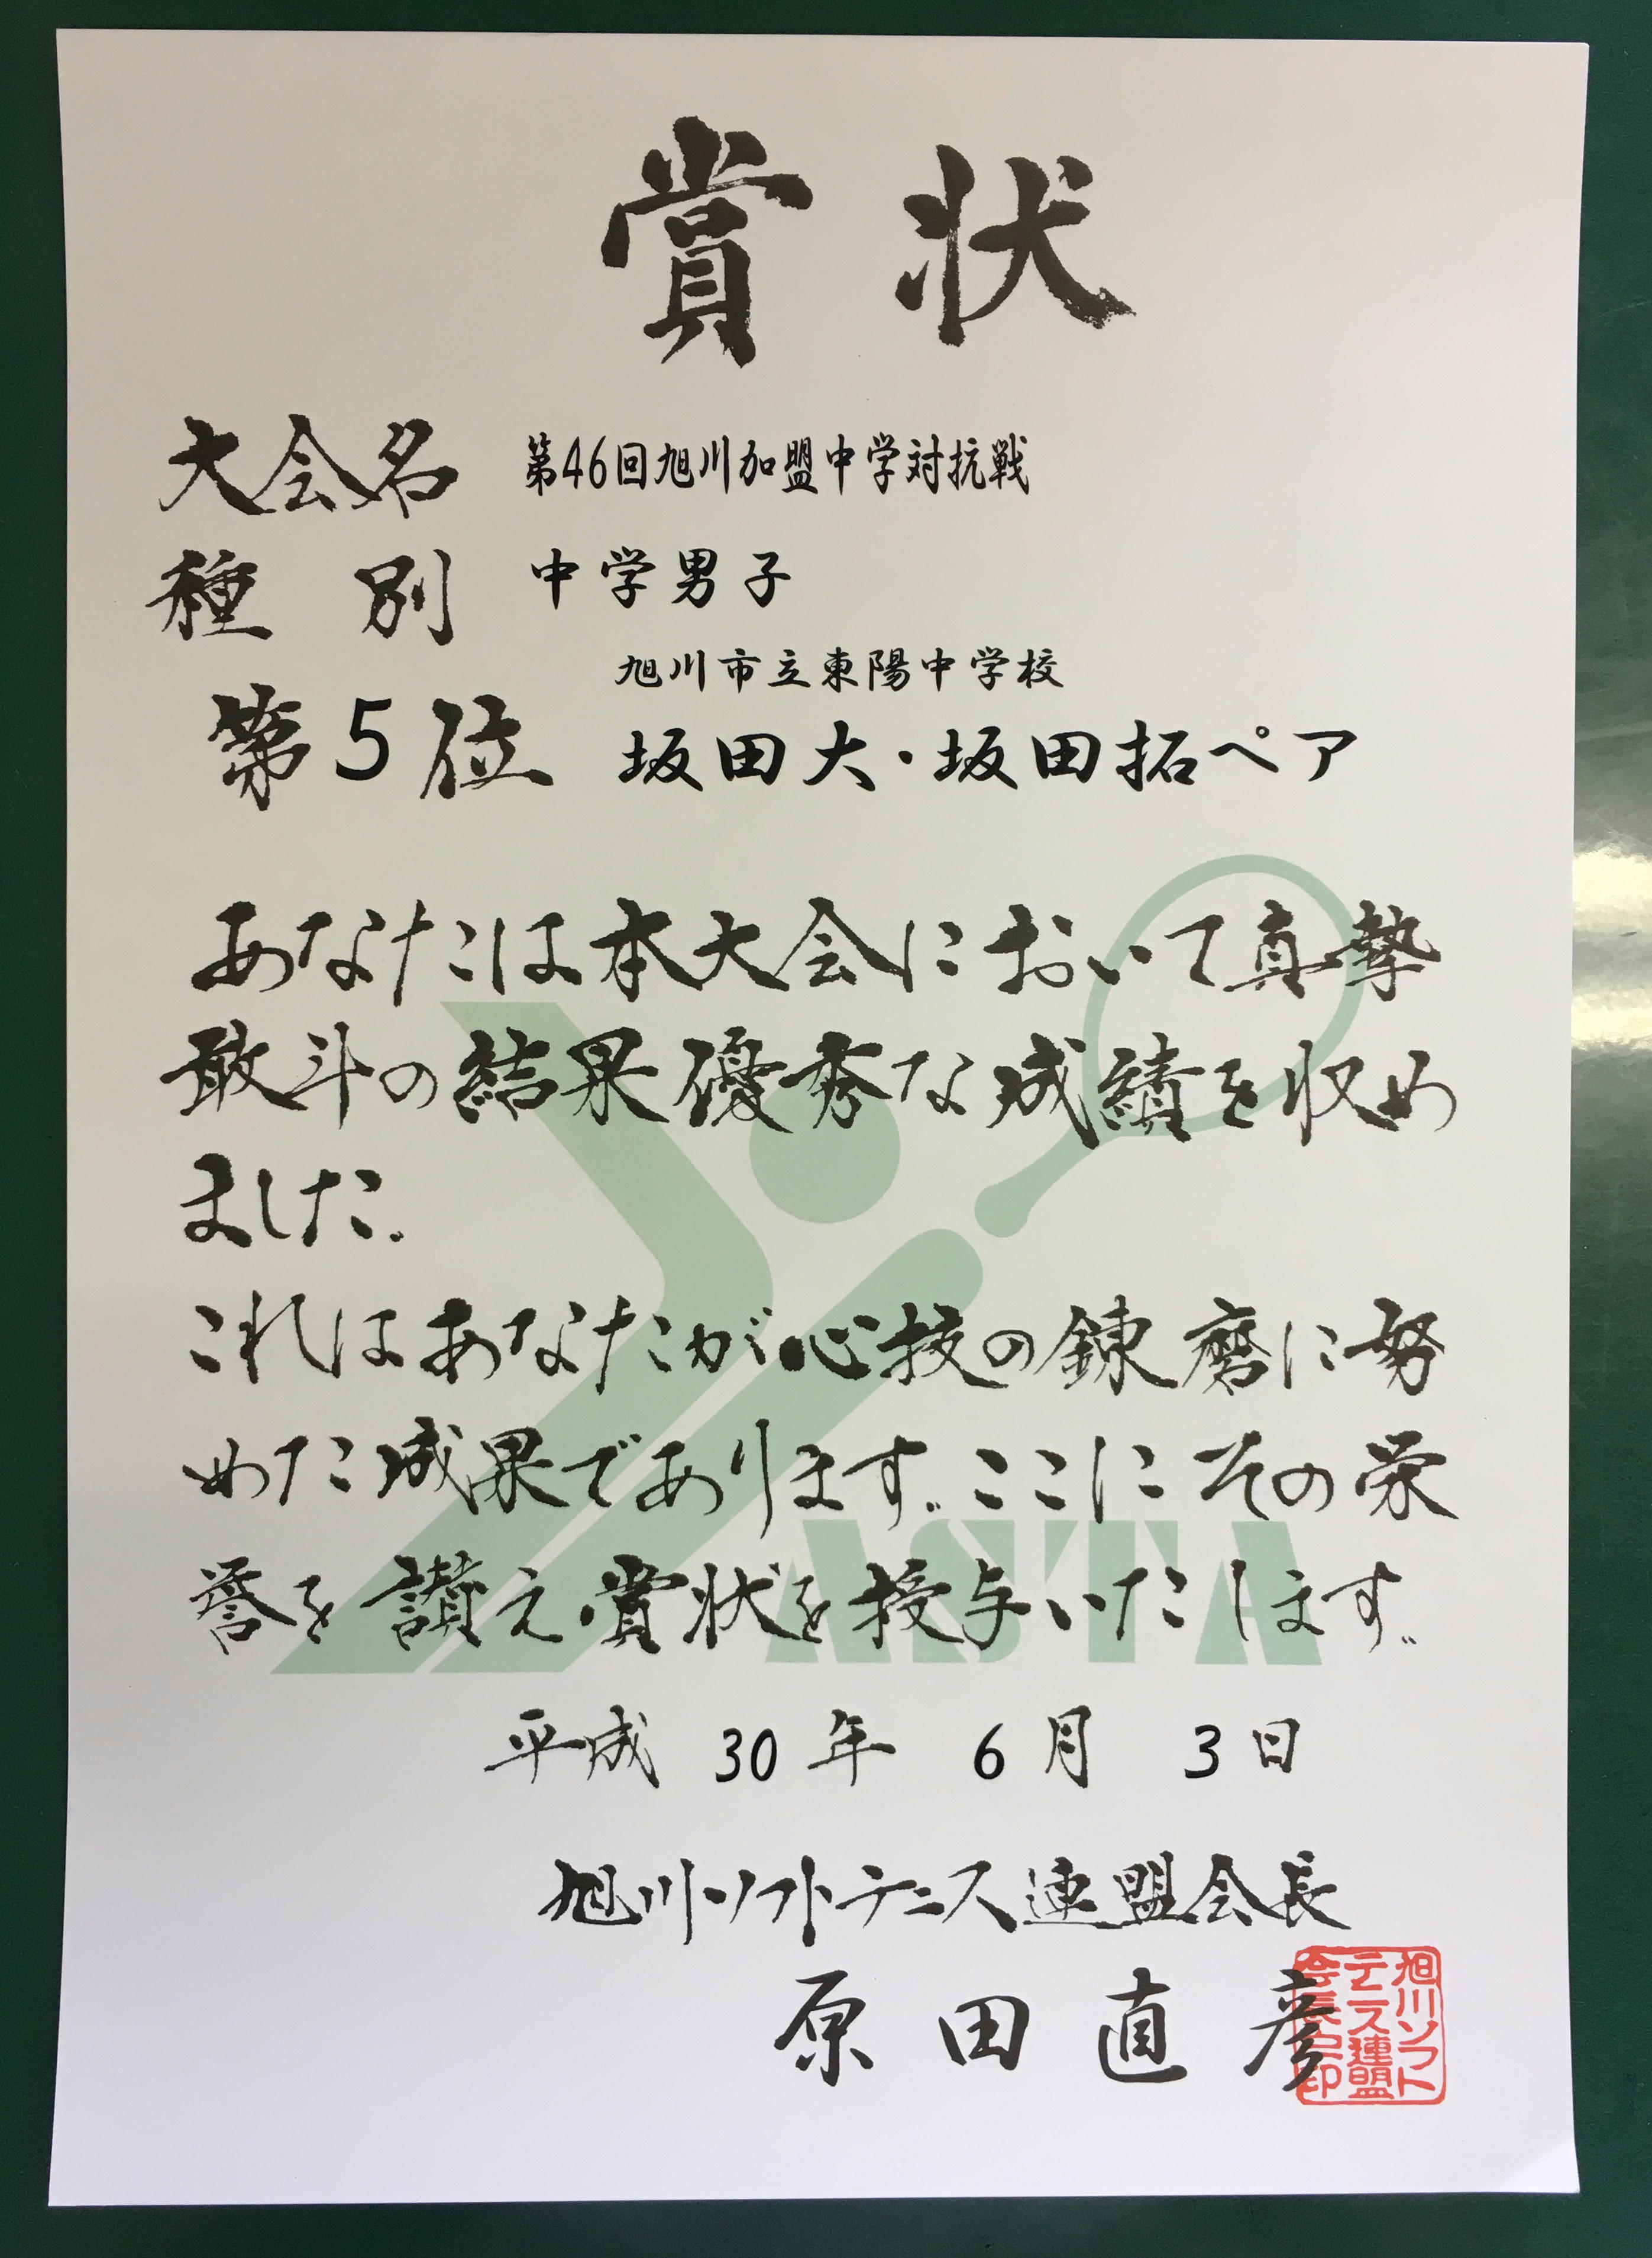 賞状
大会名 第46回旭川加盟中学対抗戦
種別 中学男子
旭川市立東陽中学校
第5位 坂田大・坂田拓ペア
あなたは本大会において真摯
敢斗の結果優秀な成績を収め
ました。
これはあなたが心技の錬磨に努
めた成果であります。ここにその栄
誉を讃え賞状を授与いたします。
ASTA
平成30年6月3日
旭川ソフトテニス連盟会長
原田直彦
旭川ソフト
テニス連盟
会長之印